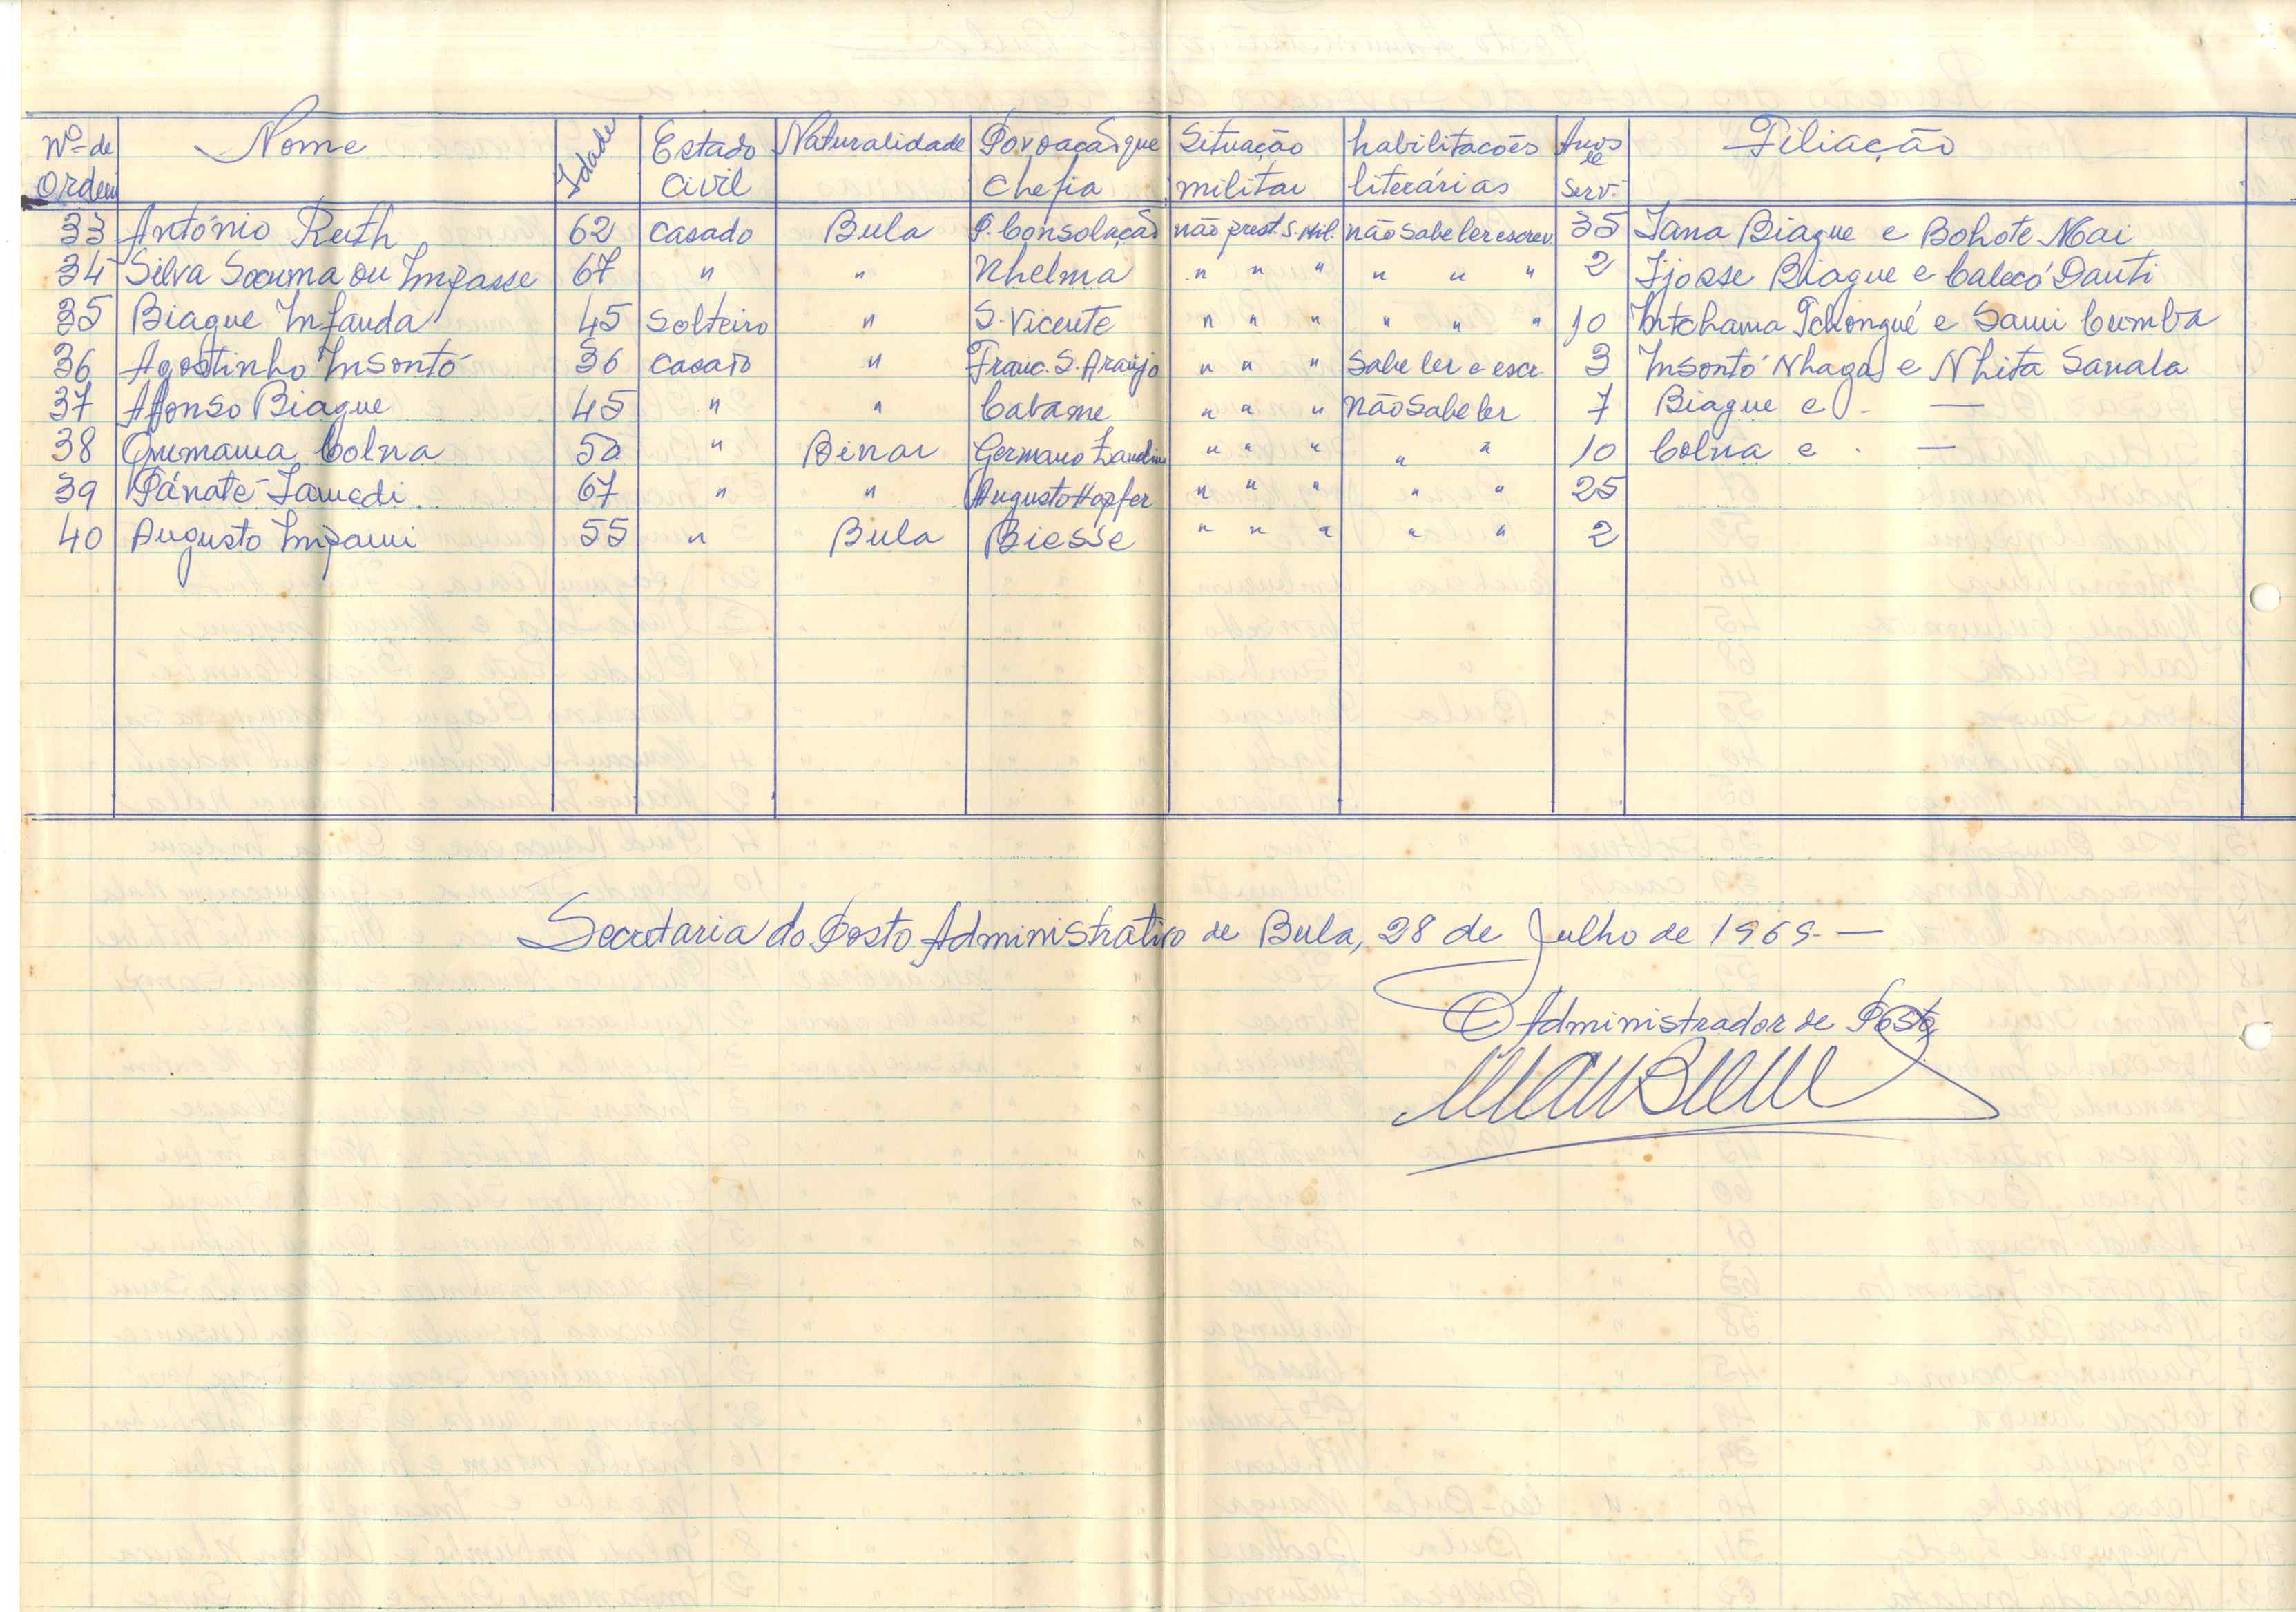 Nº de Ordem Nome Idade Estado Civil Naturalidade Povoação que chefia Situação militar habilitacões literárias Anos de Serv. Filiação
33 António Ruth 62 casado Bula P. Consolação não prest. S. Mil. não sabe ler escrev. 35 Jana Biague e Bohote Mai
34 Silva Socuma ou Impasse 67 " " Nhelma " " " " " " 2 Ijosse Biague e Calecó Dauti
35 Biague Infanda 45 Solteiro " S. Vicente " " " " " " 10 Intchama Tchongué e Sami Cumba
36 Agostinho Insontó 36 casado " Franc. S. Araujo " " " Sabe ler e escr. 3 Insontó Nhaga e Nhita Sanala
37 Afonso Biague 45 " " Catame " " " não sabe ler 7 Biague e . —
38 Quemama Colna 52 " Binar Germano Landim " " " " " 10 Colna e . —
39 Pánate Jamedi 67 " " Augusto Hopfer " " " " " 25
40 Augusto Impami 55 " Bula Biesse " " " " " 2
Secretaria do Posto Administrativo de Bula, 28 de Julho de 1969. —
O Administrador de Posto